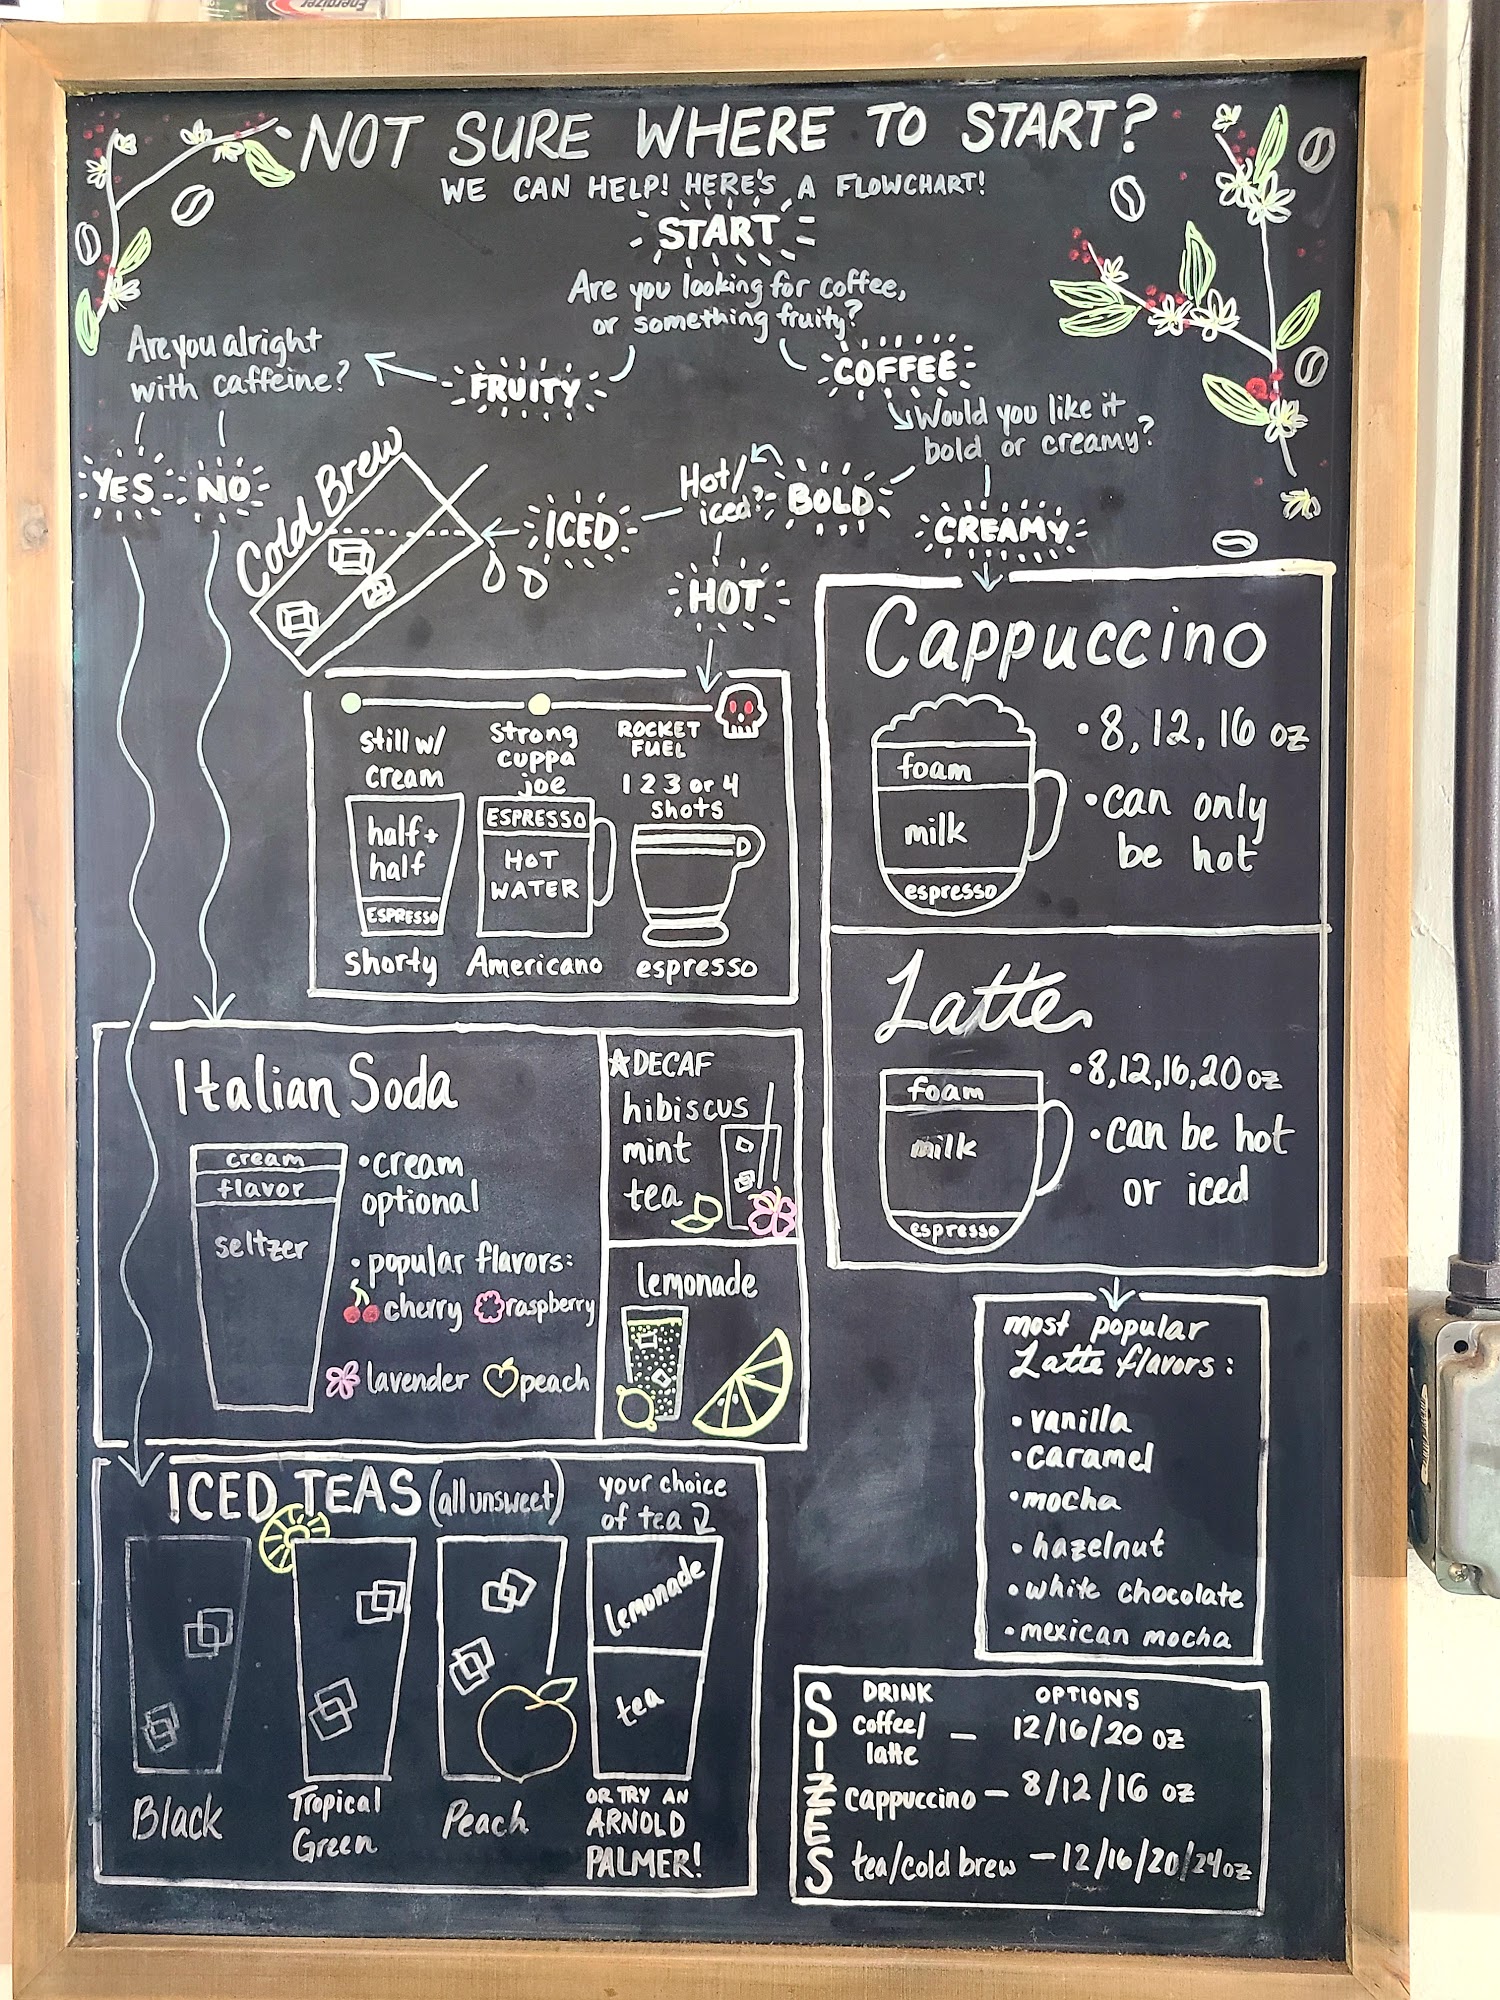 Energizer
NOT SURE WHERE TO START?
WE CAN HELP! HERE'S A FLOWCHART!
START
Are you looking for coffee,
or something fruity?
FRUITY
COFFEE
Are you alright
with caffeine?
YES
NO
Would you like it
bold or creamy?
BOLD
CREAMY
Hot/
iced?
ICED
HOT
Cold Brew
still w/
cream
half +
half
ESPRESSO
Shorty
strong
cuppa
joe
ESPRESSO
HOT
WATER
Americano
ROCKET
FUEL
1 2 3 or 4
shots
espresso
Cappuccino
foam
milk
espresso
• 8, 12, 16 oz
• can only
be hot
Latte
foam
milk
espresso
• 8, 12, 16, 20 oz
• can be hot
or iced
Italian Soda
cream
flavor
seltzer
• cream
optional
• popular flavors:
cherry raspberry
lavender peach
☆DECAF
hibiscus
mint
tea
lemonade
most popular
Latte flavors:
• vanilla
• caramel
• mocha
• hazelnut
• white chocolate
• mexican mocha
ICED TEAS (all unsweet)
Black
Tropical
Green
Peach
your choice
of tea
lemonade
tea
OR TRY AN
ARNOLD
PALMER!
SIZES
DRINK OPTIONS
coffee/
latte — 12/16/20 oz
cappuccino — 8/12/16 oz
tea/cold brew — 12/16/20/24oz